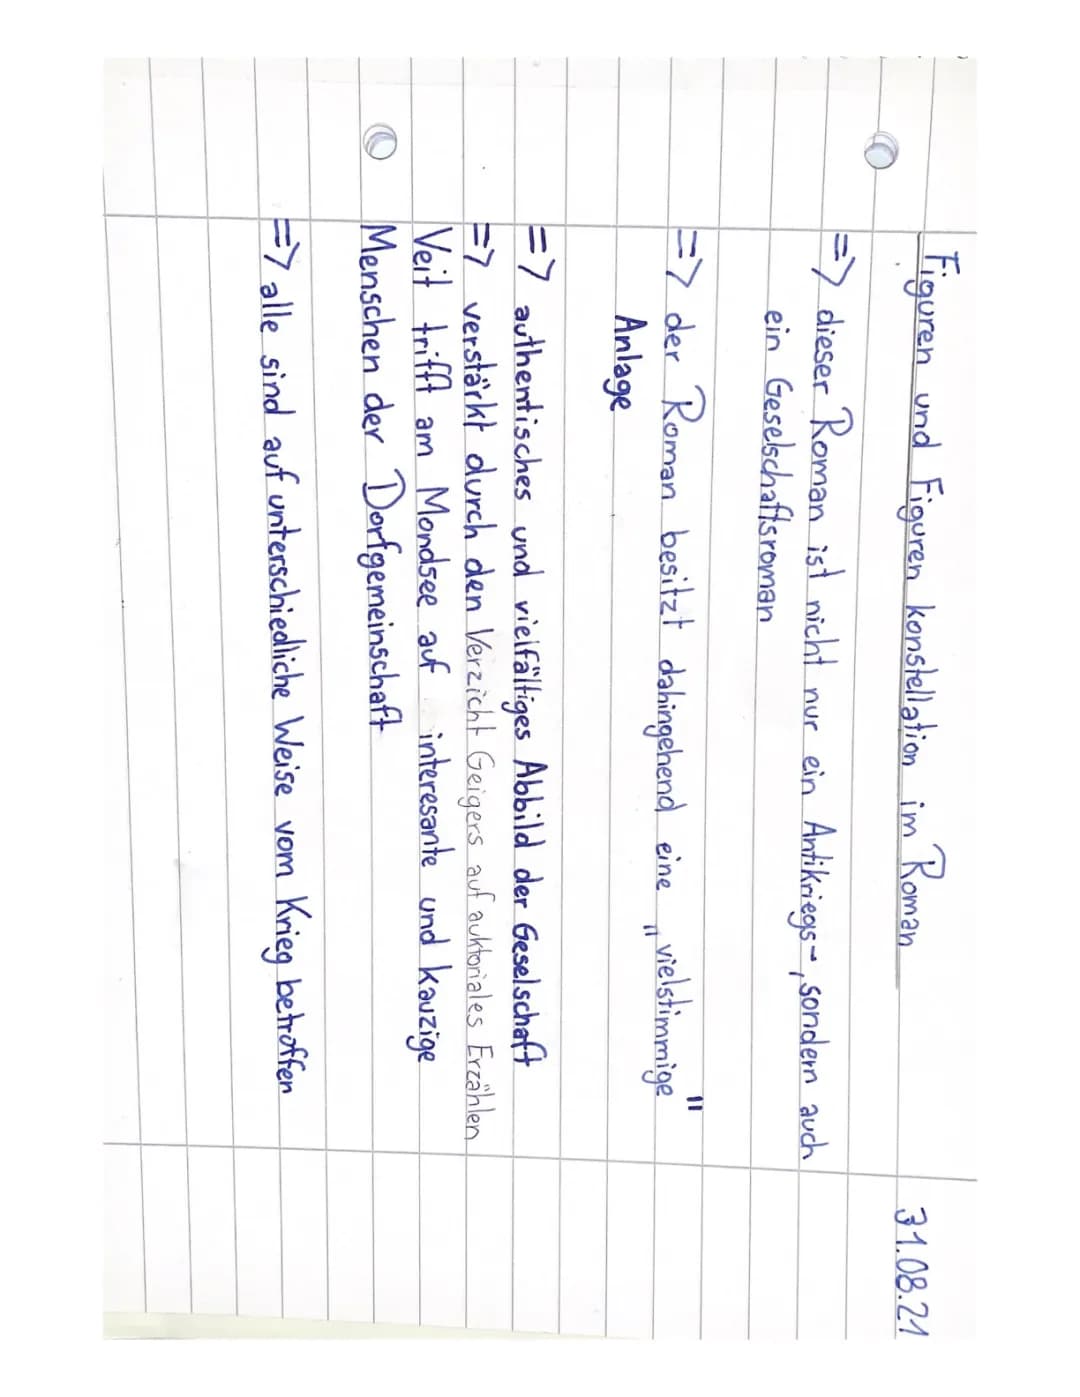 31.08.21
Figuren und Figuren konstellation im Roman
=> dieser Roman ist nicht nur ein Antikriegs-, sondern auch
ein Geselschaftsroman
=> der Roman besitzt dahingehend eine "vielstimmige"
Anlage
=> authentisches und vielfältiges Abbild der Geselschaft
=> verstärkt durch den Verzicht Geigers auf auktoriales Erzählen
Veit trifft am Mondsee auf interesante und kauzige
Menschen der Dorfgemeinschaft
=> alle sind auf unterschiedliche Weise vom Krieg betroffen